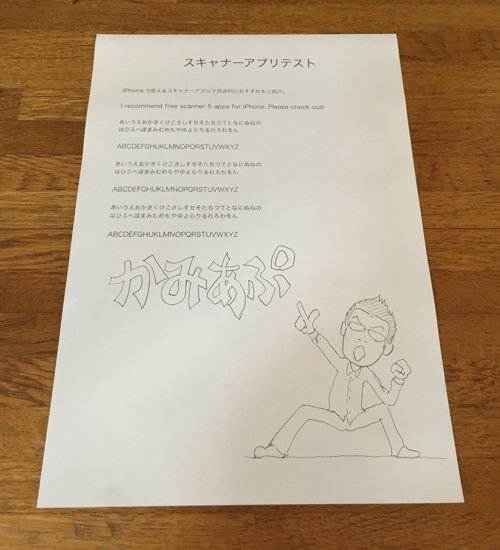 スキャナーアプリテスト
iPhoneで使えるスキャナーアプリを用途別におすすめをご紹介。
I recommend free scanner 5 apps for iPhone. Please check out!
あいうえおかきくけこさしすせそたちつてとなにぬねの
はひふへほまみむめもやゆよらりるれろわをん
ABCDEFGHIJKLMNOPQRSTUVWXYZ
あいうえおかきくけこさしすせそたちつてとなにぬねの
はひふへほまみむめもやゆよらりるれろわをん
ABCDEFGHIJKLMNOPQRSTUVWXYZ
あいうえおかきくけこさしすせそたちつてとなにぬねの
はひふへほまみむめもやゆよらりるれろわをん
ABCDEFGHIJKLMNOPQRSTUVWXYZ
かみあぷ